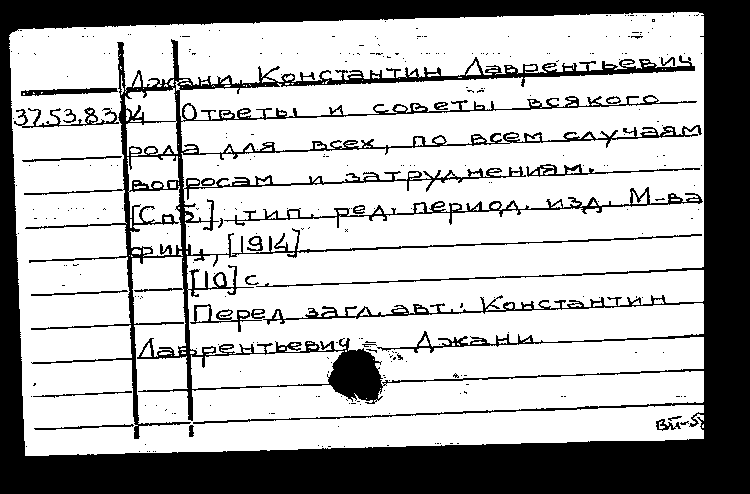 Джани, Константин Лаврентьевич
37.53.8.304 Ответы и советы всякого
рода для всех, по всем случаям
вопросам и затруднениям.
[Спб.], тип. ред. период. изд. М-ва
фин., [1914].
[10] с.
Перед загл. авт.: Константин
Лаврентьевич Джани.